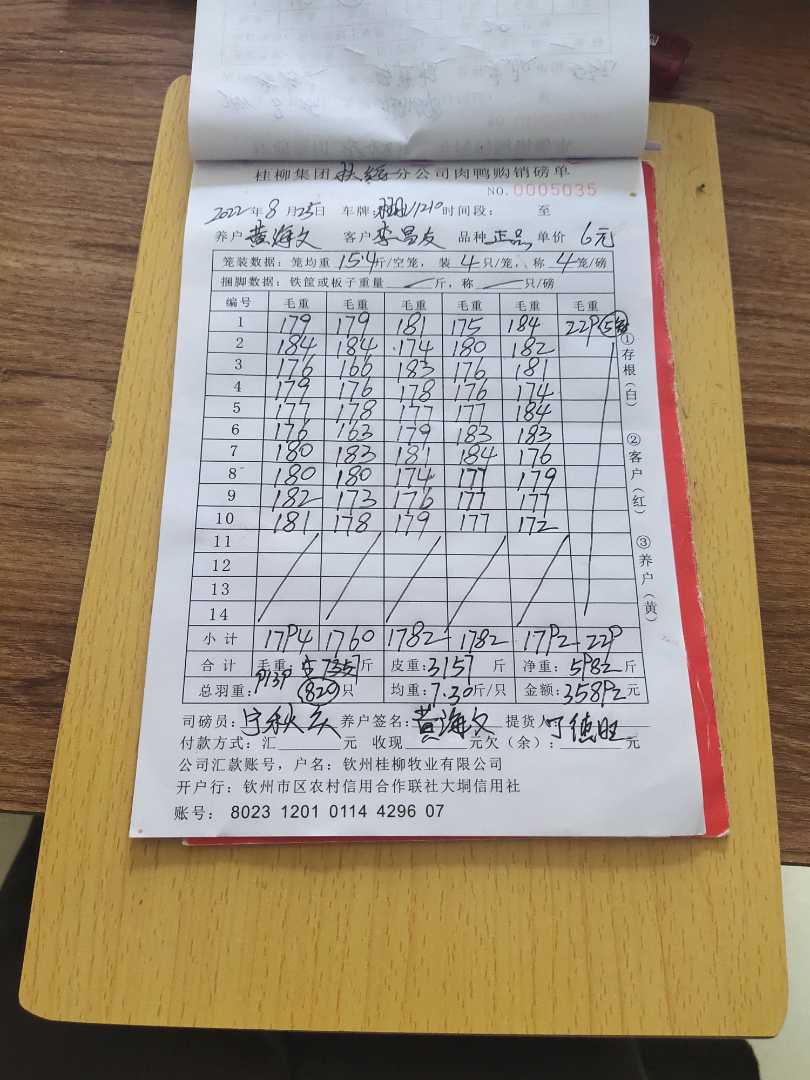 桂柳集团扶绥分公司肉鸭购销磅单
NO.0005035
2022年8月25日 车牌: 1210 时间段: 至
养户黄海文 客户李昌友 品种正品 单价 6元
笼装数据: 笼均重15.4斤/空笼, 装4只/笼, 称4笼/磅
捆脚数据: 铁筐或板子重量 斤, 称 只/磅
编号 毛重 毛重 毛重 毛重 毛重 毛重
1 179 179 181 175 184 229
2 184 184 174 180 182
3 176 166 183 176 181
4 179 176 178 176 174
5 177 178 177 177 184
6 176 163 179 183 183
7 180 183 181 184 176
8 180 180 174 177 179
9 182 173 176 177 177
10 181 178 179 177 172
11
12
13
14
小计 1794 1760 1782 1782 1792 229
合计 毛重: 9139斤 皮重:3157斤 净重:5982斤
总羽重: 820只 均重:7.30斤/只 金额:35892元
司磅员: 养户签名:黄海文 提货人
付款方式: 汇 元 收现 元欠(余): 元
公司汇款账号, 户名: 钦州桂柳牧业有限公司
开户行: 钦州市区农村信用合作联社大垌信用社
账号: 8023 1201 0114 4296 07
①存根(白)
②客户(红)
③养户(黄)